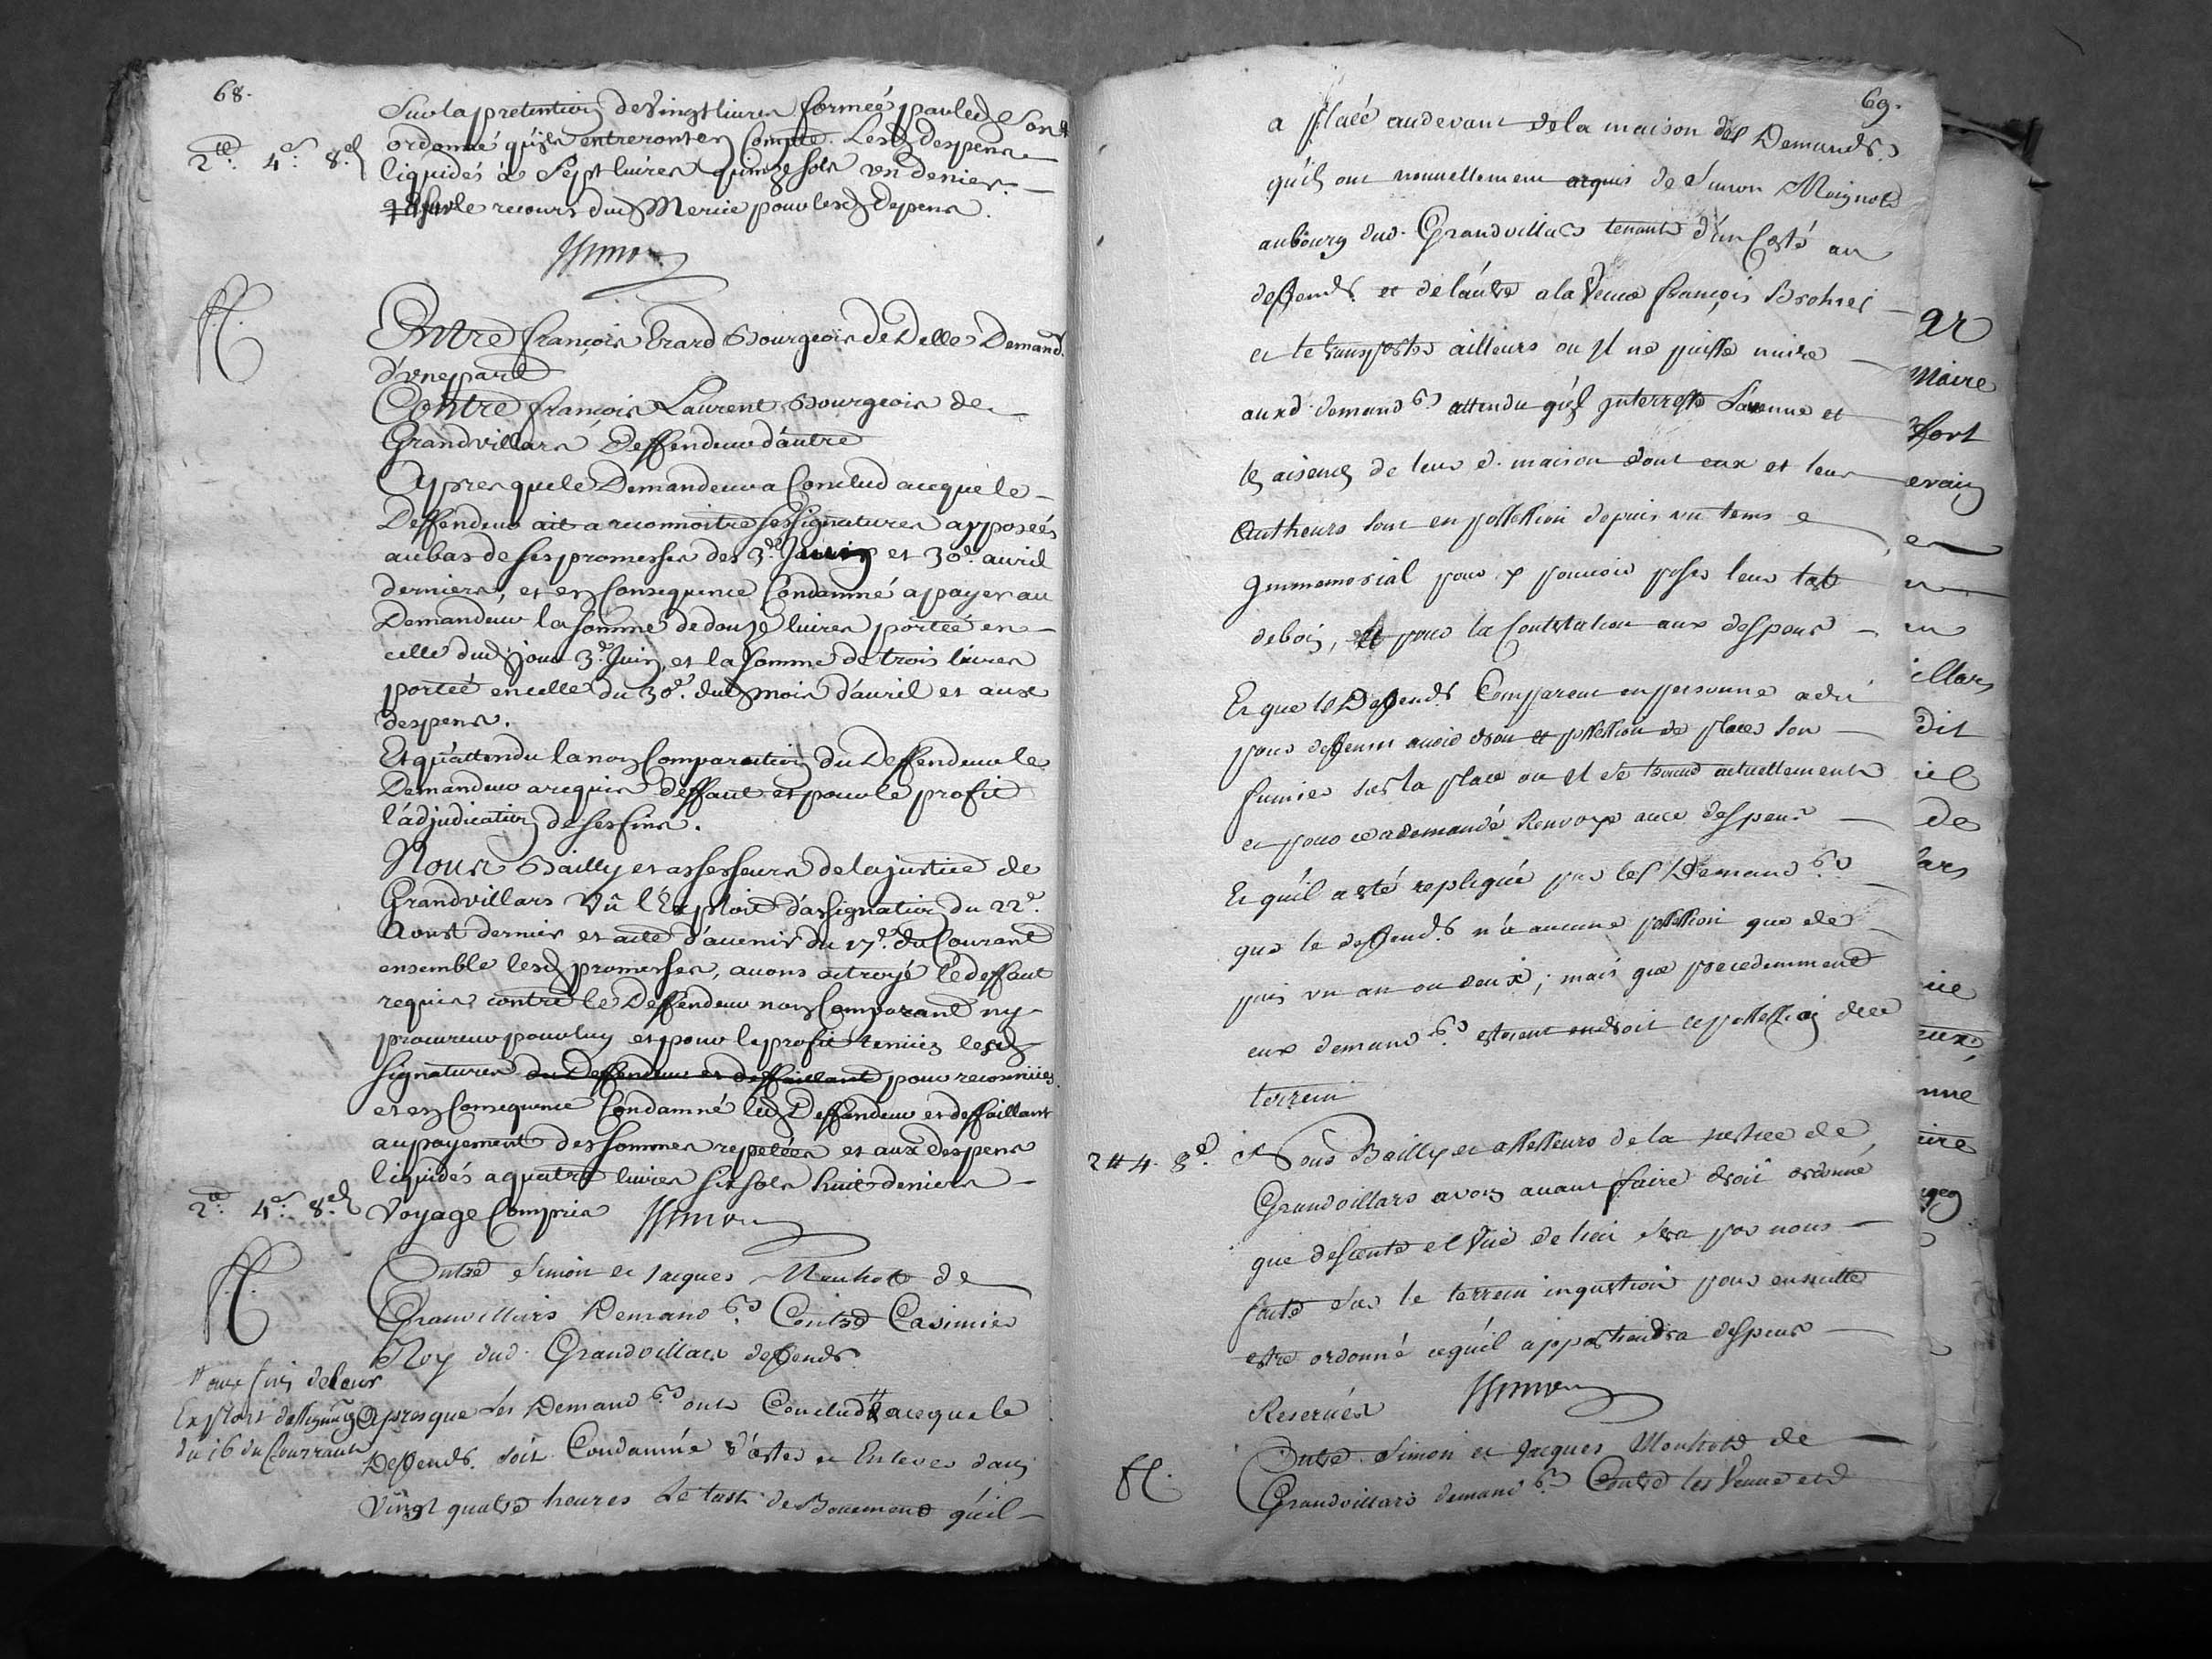 68.
Sur la pretention de Vingt livres formeé par led Son
ordonné qu'ils entreront en Compte. Lesd despens
2.ᵗᵗ 4.ˢ 8.ᵈ
liquidés à Sept livres quinze sols un denier.
sauf le recours dud Mercie pour lesd depens.
Entre françois Erard Bourgeois de Delle Demand.
d'une part
Contre françois Laurent Bourgeois de
Grandvillars Deffendeur d'autre
Apres que le Demandeur a Conclud aceque le
Deffendeur ait a reconnoitre ses signatures apposeés
au bas de ses promesses des 3.ᵉ Juin et 30.ᵉ avril
derniers, et en Consequence Condamné a payer au
Demandeur la somme de douze livres porteé en
celle dud jour 3.ᵉ Juin, et la somme de trois livres
porteé en celle du 30.ᵉ dud mois d'avril et aux
despens.
Et qu'attendu la non Comparation du Deffendeur le
Demandeur a requis deffaut et pour le profit
l'adjudication de ses fins.
Nous Bailly et assesseurs de la justice de
Grandvillars Vû l'Exploit d'assignation du 22.ᵉ
Aoust dernier et acte d'avenir du 17.ᵉ du Courant
ensemble lesd promesses, avons octroyé le deffaut
requis contre le Deffendeur non Comparant ny
procureur pour luy et pour le profit tenües lesd
signatures du Deffendeur et deffaillant pour reconnües
et en Consequence Condamné led Deffendeur et deffaillant
au payement des sommes repetées et aux despens
liquidés a quatre livres six sols huit deniers
2.ᵗᵗ 4.ˢ 8.ᵈ
Voyage Compris
Entre Simon et Jacques Mouhot de
Grandvillars Demand.ʳˢ Contre Casimier
Roy dud. Grandvillars deffend.ʳ
# aux fins de leur
Exploit d'assignaõn
du 16 du Courrant
Apres que les Demand.ʳˢ ont Conclud # aceque le
Deffend.ʳ soit Condamné d'oster et Enlever dans
Vingt quatre heures Le tast de qu'il
69.
a placé audevant de la maison des Demand.ʳˢ
qu'ils ont nouvellement acquis de Simon Moignot
au bourg dud. Grandvillars tenant d'un Costé au
deffend.ʳ et de l'autre a la Veuve françois
et le transporter ailleurs ou Il ne puisse nuire
auxd. demand.ʳˢ attendu qu'il Interresse L'avenue et
les aisences de leur d. maison dont eux et leurs
Autheurs sont en possession depuis un tems
Immemorial pour y pouvoir poser leur tast
de bois, et pour la Contestation aux despens
Et que le Deffend.ʳ Comparant en personne a dit
pour deffenses avoir droit et possession de placer son
fumier sur la place ou Il se trouve actuellement
et pour ce a demandé Renvoye avec despens
Et qu'il a esté repliqué par les Demand.ʳˢ
que le deffend.ʳ n'a aucune possession que de
puis un an ou deux; mais que precedemment
eux demand.ʳˢ estoient en droit et possession dud
terrein
2 # 4. 8.ᵈ
Nous Bailly et assesseurs de la justice de
Grandvillars avons avant faire droit ordonné
que descente et Vüe de lieu sera par nous
faite sur le terrein inquestion pour ensuitte
estre ordonné ce qu'il appartiendra despens
Reservés
Entre Simon et Jacques Mouhot de
Grandvillars demand.ʳˢ Contre les Veuve et